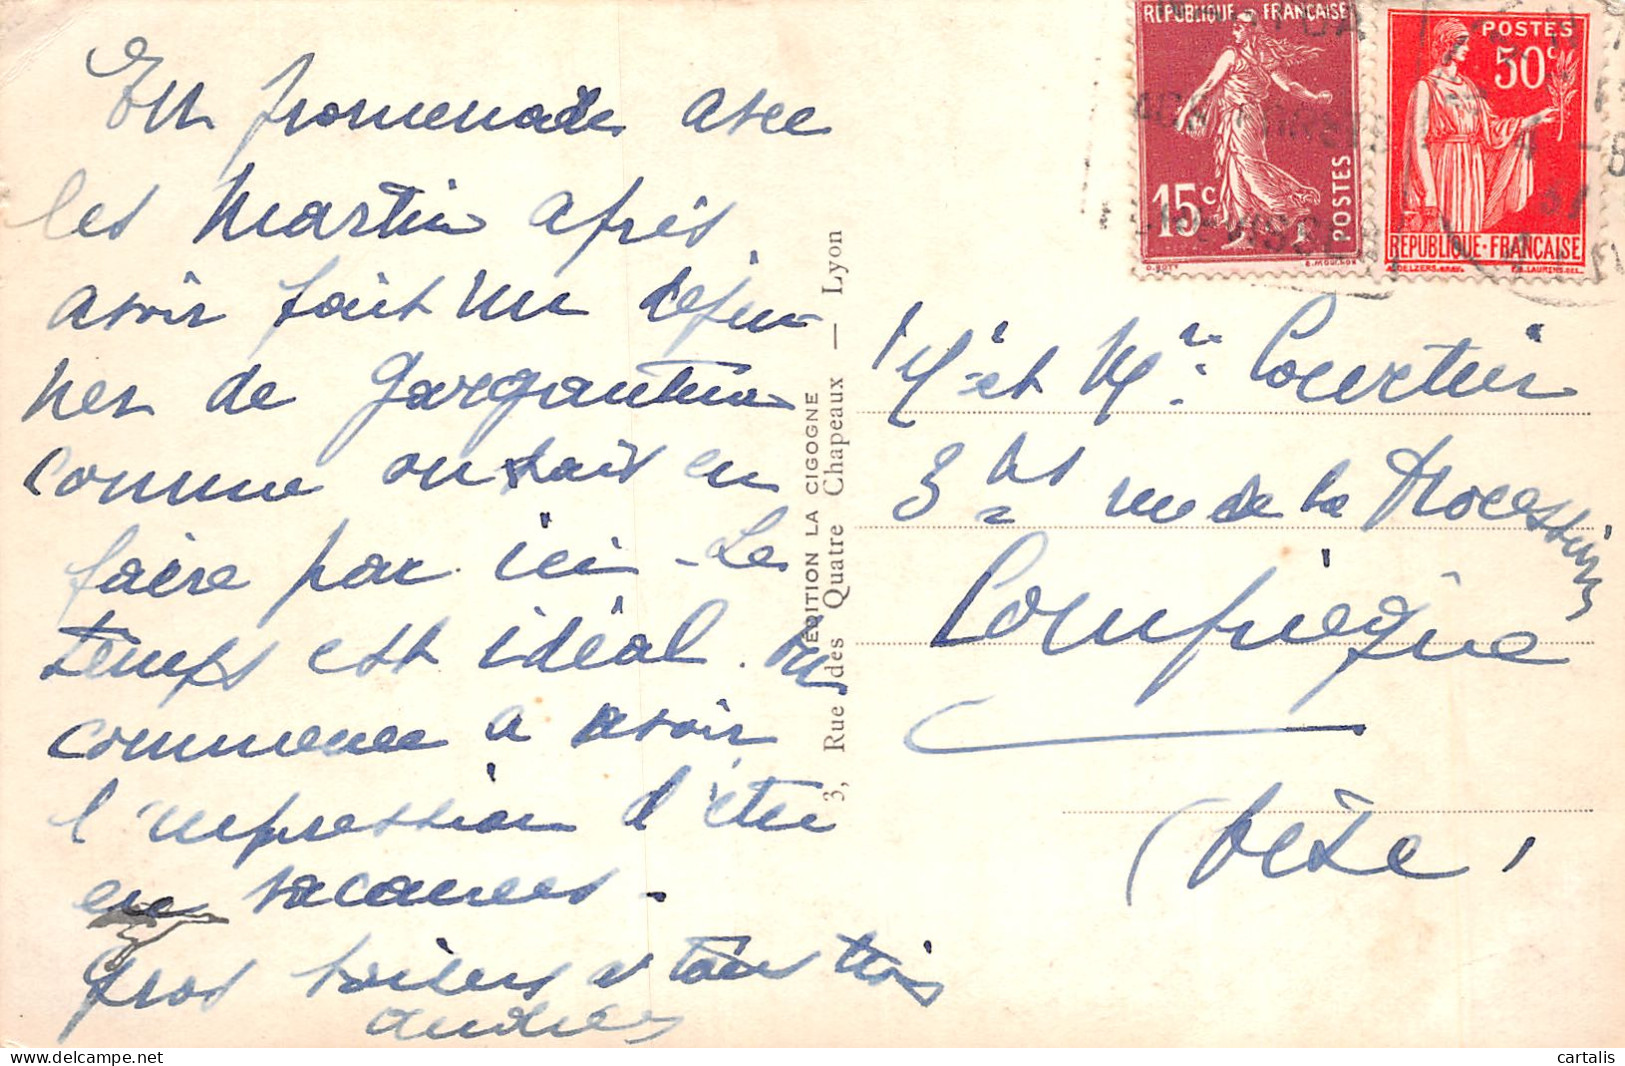 En promenade avec
les Martin après
avoir fait un déjeu-
ner de gargantua
comme on sait en
faire par ici - Le
temps est idéal. On
commence a avoir
l'impression d'être
en vacances -
gros baisers a tous trois
Andrée
ÉDITION LA CIGOGNE
3, Rue des Quatre Chapeaux — Lyon
REPUBLIQUE FRANÇAISE
15c
POSTES
POSTES
50c
REPUBLIQUE·FRANÇAISE
Mr et Mme Courtier
3 bis rue de la Procession
Compiègne
(Oise)
cartalis